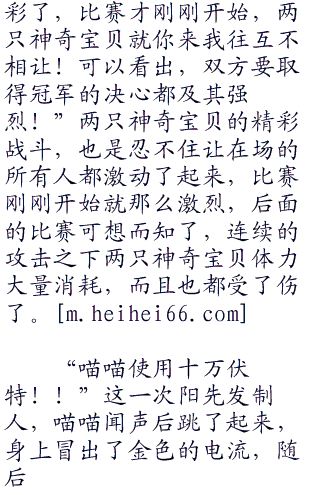 彩了，比赛才刚刚开始，两
只神奇宝贝就你来我往互不
相让！可以看出，双方要取
得冠军的决心都及其强
烈！”两只神奇宝贝的精彩
战斗，也是忍不住让在场的
所有人都激动了起来，比赛
刚刚开始就那么激烈，后面
的比赛可想而知了，连续的
攻击之下两只神奇宝贝体力
大量消耗，而且也都受了伤
了。[m.heihei66.com]
“喵喵使用十万伏
特！！”这一次阳先发制
人，喵喵闻声后跳了起来，
身上冒出了金色的电流，随
后